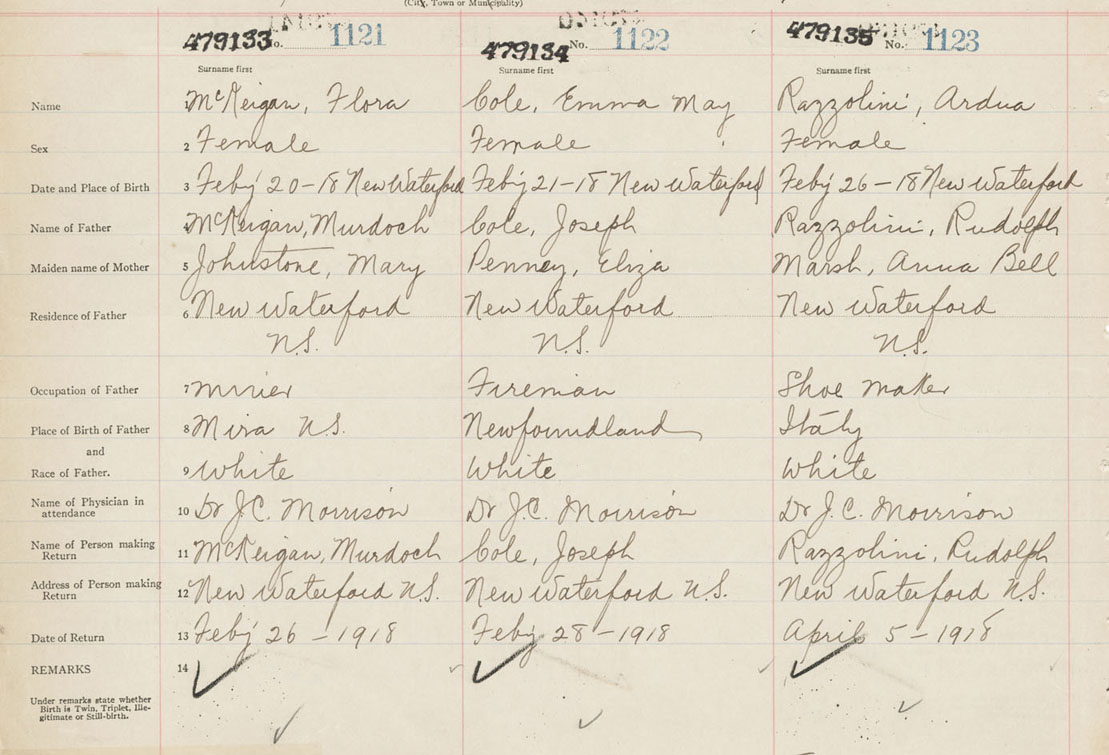 (City, Town or Municipality)
479133 No. 1121 479134 No. 1122 479135 No. 1123
Surname first Surname first Surname first
Name 1 McKeigan, Flora Cole, Emma May Razzolini, Ardua
Sex 2 Female Female Female
Date and Place of Birth 3 Feby 20-18 New Waterford Feby 21-18 New Waterford Feby 26-18 New Waterford
Name of Father 4 McKeigan, Murdoch Cole, Joseph Razzolini, Rudolph
Maiden name of Mother 5 Johnstone, Mary Penney, Eliza Marsh, Anna Bell
Residence of Father 6 New Waterford New Waterford New Waterford
N.S. N.S. N.S.
Occupation of Father 7 Miner Fireman Shoe maker
Place of Birth of Father 8 Mira N.S. Newfoundland Italy
and
Race of Father. 9 White White White
Name of Physician in attendance 10 Dr J.C. Morrison Dr J.C. Morrison Dr J.C. Morrison
Name of Person making Return 11 McKeigan, Murdoch Cole, Joseph Razzolini, Rudolph
Address of Person making Return 12 New Waterford N.S. New Waterford N.S. New Waterford N.S.
Date of Return 13 Feby 26-1918 Feby 28-1918 April 5-1918
REMARKS 14
Under remarks state whether
Birth is Twin, Triplet, Ille-
gitimate or Still-birth.